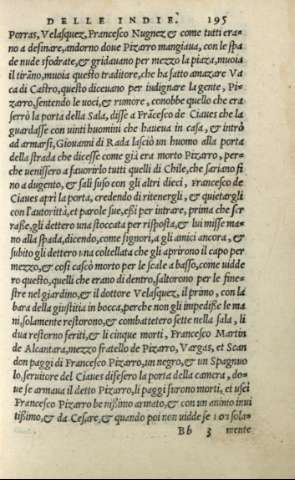 DELLE INDIE. 195
Porras, Velasquez, Francesco Nugnez & come tutti era-
no a desinare, andorno doue Pizarro mangiaua, con le spa
de nude sfodrate, & gridauano per mezzo la piaza, muoia
il tirāno, muoia questo traditore, che ha fatto amazare Va
ca di Castro, questo diceuano per indignare la gente, Pi-
zarro, sentendo le uoci, & rumore, conobbe quello che era
serrò la porta della Sala, disse a Frācesco de Ciaues che la
guardasse con uinti huomini che haueua in casa, & intrò
ad armarsi, Giouanni di Rada lasciò un huomo alla porta
della strada che dicesse come già era morto Pizarro, per-
che uenissero a fauorirlo tutti quelli di Chile, che sariano fi
no a dugento, & salì suso con gli altri dieci, Francesco de
Ciaues aprì la porta, credendo di ritenergli, & quietargli
con l'autorittà, et parole sue, essi per intrare, prima che ser
rasse, gli dettero una stoccata per risposta, & lui misse ma-
no alla spada, dicendo, come signori, a gli amici ancora, &
subito gli dettero una coltellata che gli aprirono il capo per
mezzo, & così cascò morto per le scale a basso, come uidde
ro questo, quelli che erano di dentro, saltorono per le fine-
stre nel giardino, & il dottore Velasquez, il primo, con la
bara della giustitia in bocca, perche non gli impedisse le ma
ni, solamente restorono, & combatetero sette nella sala, li
dua restorno feriti, & li cinque morti, Francesco Martin
de Alcantara, mezzo fratello de Pizarro, Vargas, et Scan
don paggi di Francesco Pizarro, un negro, & un Spagnuo
lo, seruitore del Ciaues difesero la porta della camera, do-
ue se armaua il detto Pizarro, li paggi furono morti, et uscì
Francesco Pizarro benissimo armato, & con un animo inui
tissimo, & da Cesare, & quando poi non uidde se non sola-
Bb 3 mente